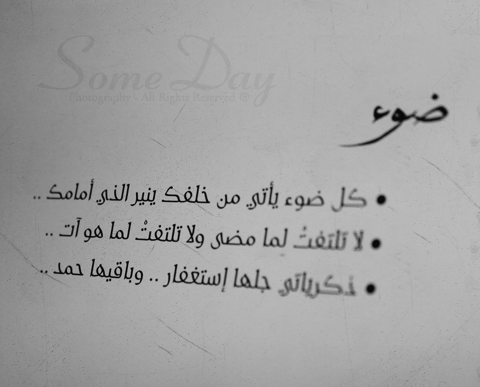 Some Day
Photography - All Rights Reserved @
ضوء
• كل ضوء يأتي من خلفك ينير الذي أمامك ..
• لا تلتفتْ لما مضى ولا تلتفتْ لما هو آت ..
• ذكرياتي جلها إستغفار .. وباقيها حمد ..